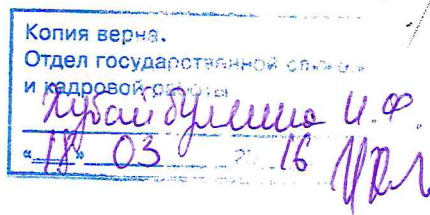 Копия верна.
Отдел государственной службы
и кадровой работы
Хубайбуллина И.Ф.
« 18 » 03 20 16